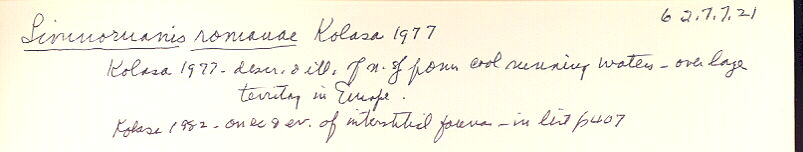 62.7.7.21
Limnoruanis romanae Kolasa 1977
Kolasa 1977 - descr. & ill. of n. g. from cool running waters - over large
territory in Europe.
Kolasa 1982 - on ec & ev. of interstitial fauna - in list p407